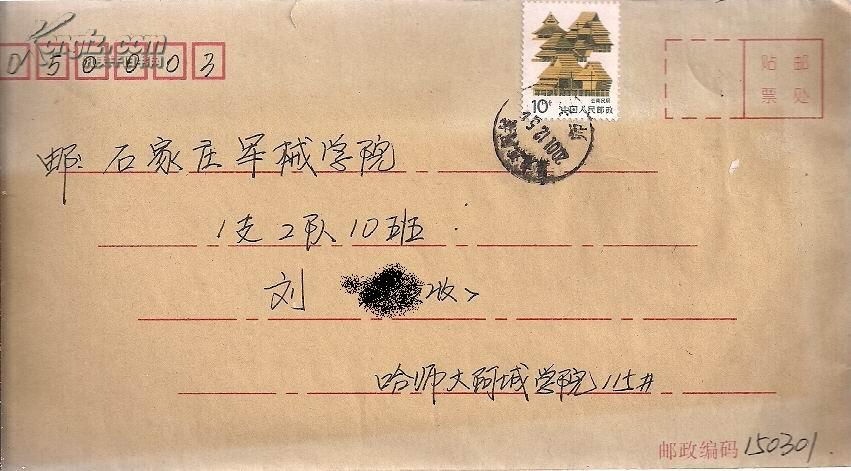 050003
云南民居
10分 中国人民邮政
2001.12.5
贴 邮
票 处
邮: 石家庄军械学院
1支2队10班.
刘 收
哈师大阿城学院115#
邮政编码 150301